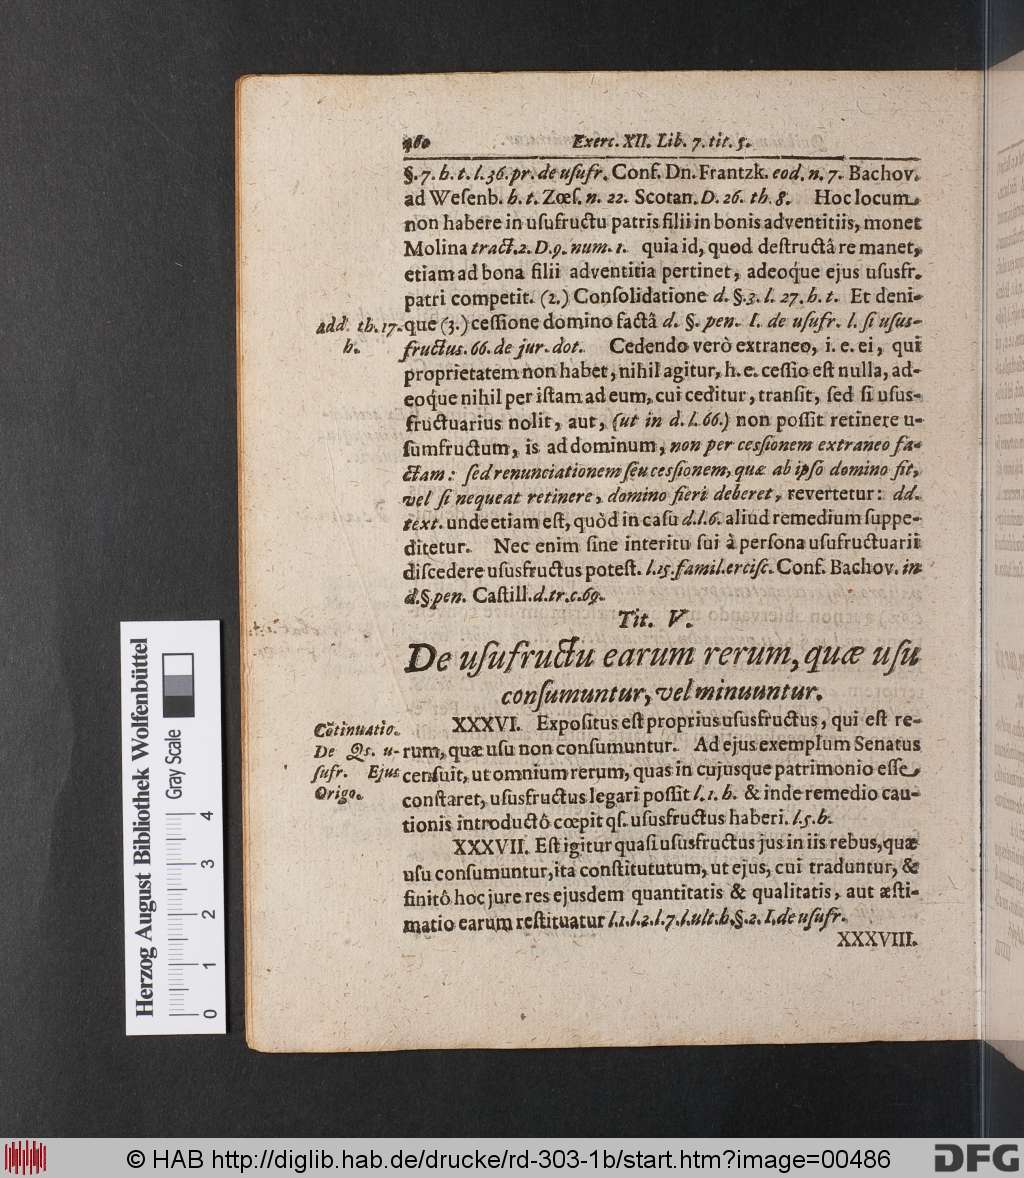 460 Exerc. XII. Lib. 7. tit. 5.
§. 7. h. t. l. 36. pr. de uſufr. Conf. Dn. Frantzk. eod. n. 7. Bachov.
ad Weſenb. h. t. Zœſ. n. 22. Scotan. D. 26. th. 8. Hoc locum
non habere in uſufructu patris filii in bonis adventitiis, monet
Molina tract. 2. D. 9. num. 1. quia id, quod deſtructâ re manet,
etiam ad bona filii adventitia pertinet, adeoq́ue ejus uſusfr.
patri competit. (2.) Conſolidatione d. §. 3. l. 27. h. t. Et deni-
add. th. 17.
h.
que (3.) ceſſione domino factâ d. §. pen. I. de uſufr. l. ſi uſus-
fructus. 66. de jur. dot. Cedendo verò extraneo, i. e. ei, qui
proprietatem non habet, nihil agitur, h. e. ceſſio eſt nulla, ad-
eoque nihil per iſtam ad eum, cui ceditur, tranſit, ſed ſi uſus-
fructuarius nolit, aut, (ut in d. l. 66.) non poſſit retinere u-
ſumfructum, is ad dominum, non per ceſſionem extraneo fa-
ctam: ſed renunciationem ſeu ceſſionem, quæ ab ipſo domino fit,
vel ſi nequeat retinere, domino fieri deberet, revertetur: dd.
text. unde etiam eſt, quòd in caſu d. l. 6. aliud remedium ſuppe-
ditetur. Nec enim ſine interitu ſui à perſona uſufructuarii
diſcedere uſusfructus poteſt. l. 15. famil. erciſc. Conf. Bachov. in
d. § pen. Caſtill. d. tr. c. 69.
Tit. V.
De uſufructu earum rerum, quæ uſu
conſumuntur, vel minuuntur.
Cõtinuatio.
De Qs. u-
ſufr. Ejus
Origo.
XXXVI. Expoſitus eſt proprius uſusfructus, qui eſt re-
rum, quæ uſu non conſumuntur. Ad ejus exemplum Senatus
cenſuit, ut omnium rerum, quas in cujusque patrimonio eſſe
conſtaret, uſusfructus legari poſſit l. 1. h. & inde remedio cau-
tionis introductô cœpit qſ. uſusfructus haberi. l. 5. h.
XXXVII. Eſt igitur quaſi uſusfructus jus in iis rebus, quæ
uſu conſumuntur, ita conſtitututum, ut ejus, cui traduntur, &
finitô hoc jure res ejusdem quantitatis & qualitatis, aut æſti-
matio earum reſtituatur l. 1. l. 2. l. 7. l. ult. h. §. 2. I. de uſufr.
XXXVIII.
Herzog August Bibliothek Wolfenbüttel
Gray Scale
0 1 2 3 4
© HAB http://diglib.hab.de/drucke/rd-303-1b/start.htm?image=00486
DFG